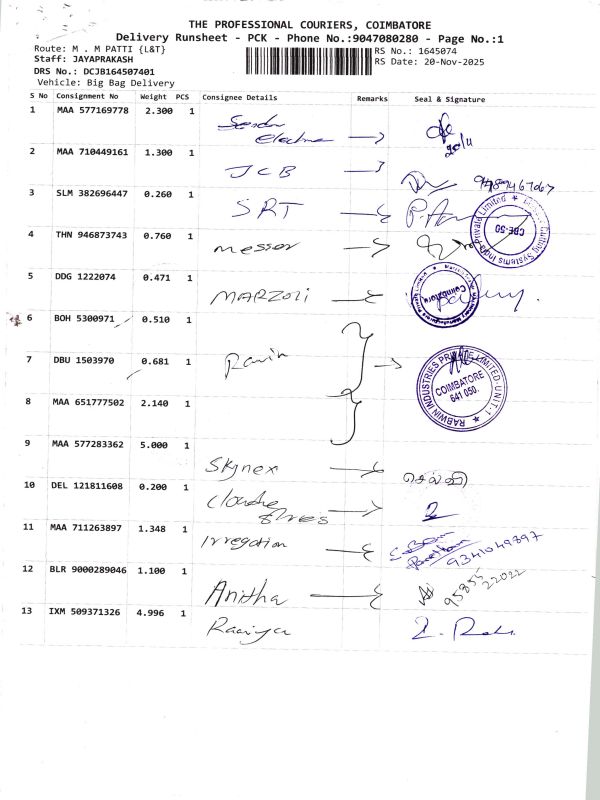 THE PROFESSIONAL COURIERS, COIMBATORE
Delivery Runsheet - PCK - Phone No.:9047080280 - Page No.:1
Route: M . M PATTI {L&T}
RS No.: 1645074
Staff: JAYAPRAKASH
RS Date: 20-Nov-2025
DRS No.: DCJB164507401
Vehicle: Big Bag Delivery
S No Consignment No Weight PCS Consignee Details Remarks Seal & Signature
1 MAA 577169778 2.300 1
20/11
2 MAA 710449161 1.300 1 JCB
3 SLM 382696447 0.260 1 SRT
4 THN 946873743 0.760 1 messer
CBE-50
5 DDG 1222074 0.471 1 MARZOLI
Coimbatore
6 BOH 5300971 0.510 1
7 DBU 1503970 0.681 1
RABWIN INDUSTRIES PRIVATE LIMITED UNIT-1
COIMBATORE
641 050.
8 MAA 651777502 2.140 1
9 MAA 577283362 5.000 1 Skynex
10 DEL 121811608 0.200 1
11 MAA 711263897 1.348 1 Irregation
9341049897
12 BLR 9000289046 1.100 1 Anitha
95855 22022
13 IXM 509371326 4.996 1